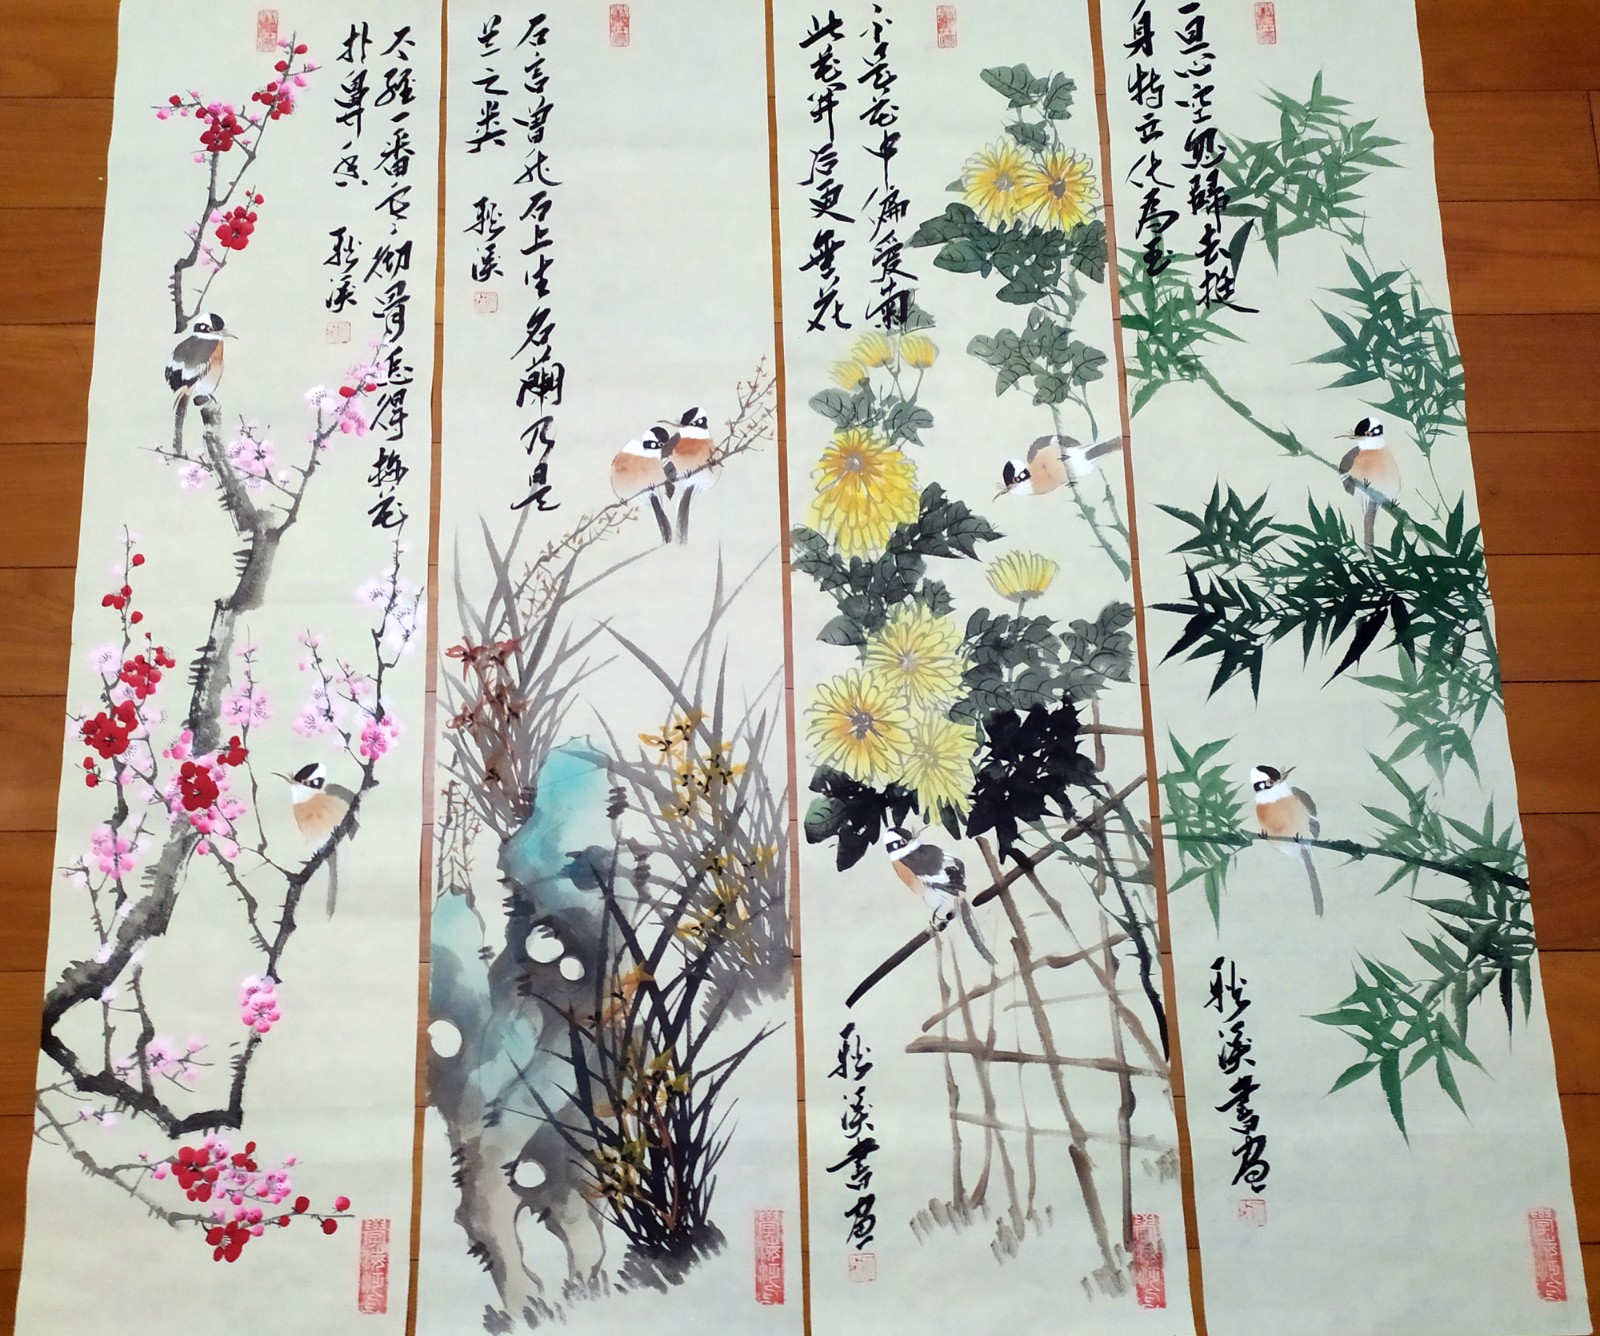 不經一番寒彻骨怎得梅花
扑鼻香 耿溪
石言曾於石上生名蘭乃是
兰之类 耿溪
不是花中偏爱菊
此花开后更無花
耿溪書画
心空忽歸去挺
身特立化為玉
耿溪書画